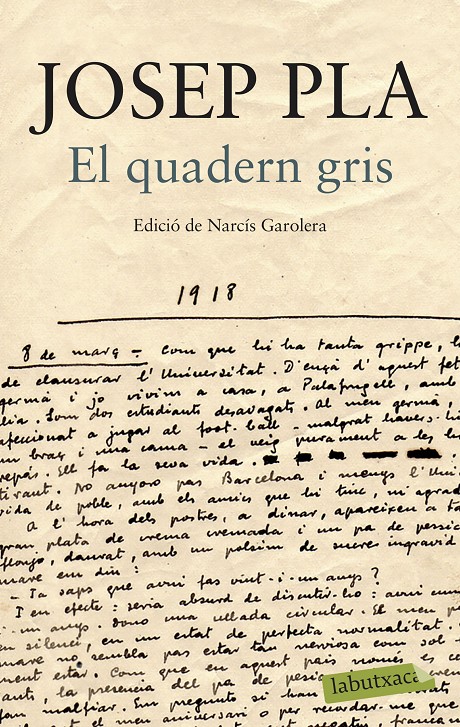 JOSEP PLA
El quadern gris
Edició de Narcís Garolera
1918
8 de març – Com que hi ha tanta grippe, h
de clausurar l'Universitat. D'ençà d'aquest fet
germà i jo vivim a casa, a Palafrugell, amb
lia. Som dos estudiants desvagats. Al meu germà,
afeccionat a jugar al foot-ball – malgrat haver-hi
un braç i una cama – el veig purament a les h
repàs. Ell fa la seva vida.
tirant. No anyoro pas Barcelona i menys l'Uni
vida de poble, amb els amics que hi tinc, m'agrad
A l'hora dels postres, a dinar, apareixen a ta
gran plata de crema cremada i un pa de pessic
flonjo, daurat, amb un polsim de sucre ingravid
mare em diu:
– Ja saps que avui fas vint-i-un anys?
I en efecte: seria absurd de discutir-ho: avui
i-un anys. Dono una ullada circular. El meu p
en silenci, en un estat de perfecta normalitat.
mare no sembla pas estar tan nerviosa com sol
ment estar. Com que en aquest país només es ce
sants, la presencia del pa de pessic
fan malfiar. Em pregunto si han
el meu aniversari o per recordar-me que
anys negatiu, franca
labutxaca